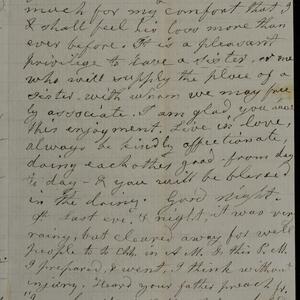 much for my comfort that I
& shall feel his love more than
ever before. It is a pleasant
privilege to have a sister, or one
who will supply the place of a
sister - with whom we may free
ly associate. I am glad you have
this enjoyment. Live in love,
always be kindly affectionate,
doing each other good from day
to day - & you will be blessed
in the doing. Good night.
last eve, & night, it was very
rainy, but cleared away for well
people to to Chh. in A.M. & this P.M.
I prepared, & went, I think without
injury. Heard your father preach fr.